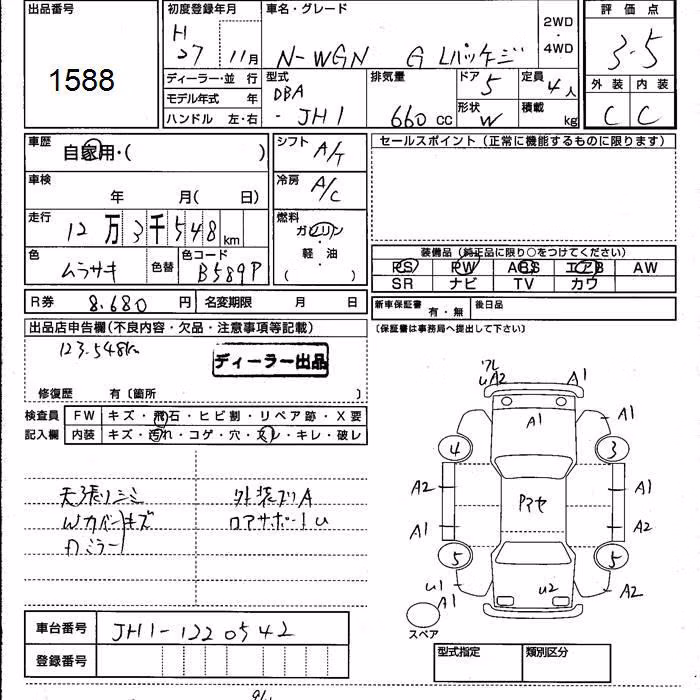 出品番号
1588
初度登録年月
H
27 11月
車名・グレード
N-WGN G Lパッケージ
2WD
・
4WD
評価点
3.5
外装 内装
C C
ディーラー・並行
モデル年式 年
ハンドル 左・右
型式
DBA
- JH1
排気量
660 cc
ドア
5
定員
4人
形状
W
積載
kg
車歴
自家用・( )
車検
年 月( 日)
走行
12万3千548km
色
ムラサキ
色替
色コード
B589P
シフト
A/T
冷房
A/C
燃料
ガソリン
・
軽・油
( )
セールスポイント(正常に機能するものに限ります)
装備品(純正品に限り○をつけてください)
PS PW ABS エアB AW
SR ナビ TV カワ
R券 8.680円
名変期限 月 日
新車保証書 有・無
後日品
(保証書は事務局へ提出して下さい)
出品店申告欄(不良内容・欠品・注意事項等記載)
123.548km
ディーラー出品
修復歴 有〔箇所 〕
検査員
記入欄
FW キズ・飛石・ヒビ割・リペア跡・X要
内装 キズ・汚れ・コゲ・穴・スレ・キレ・破レ
天張りシミ
Wカバーキズ
Rミラー
外装ズリA
ロアサポートU
ワレ
UA2 A1
A1 A1
4 3
A2 A1
Pマセ
A1 A2
5 5
U1 U2
A1 A2
スペア
車台番号 JH1-1220542
登録番号
型式指定 類別区分